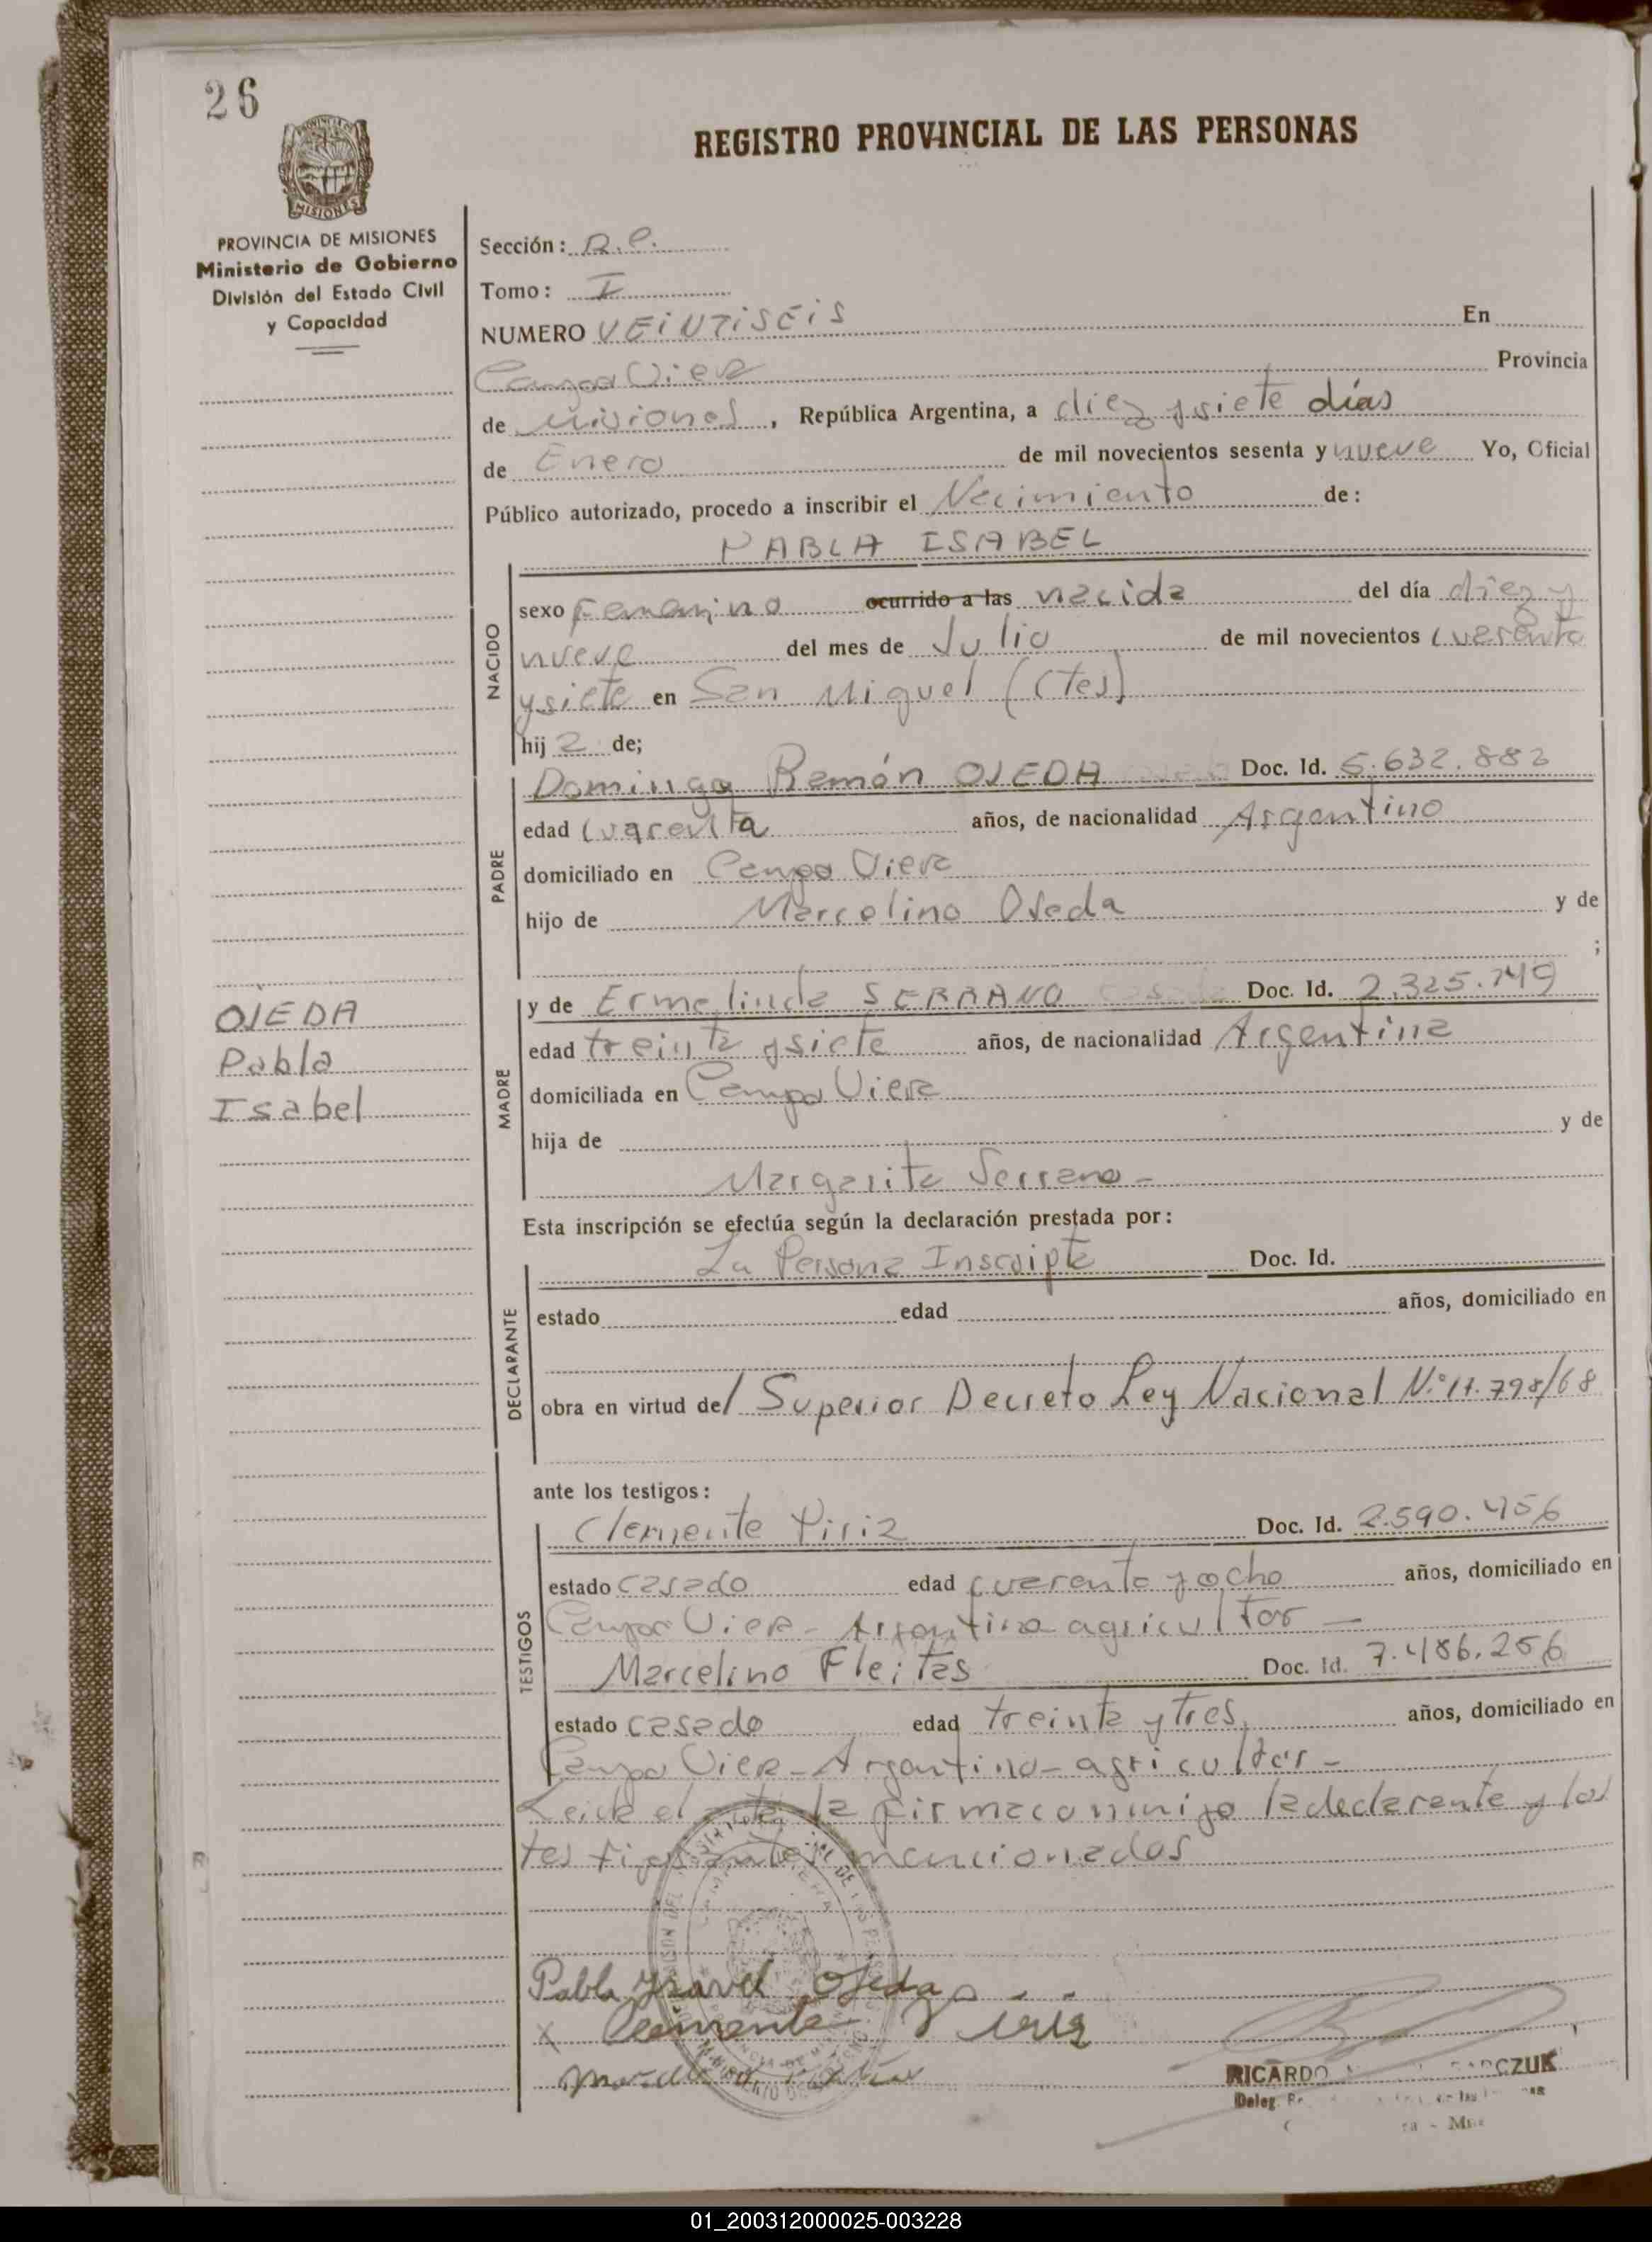 26
REGISTRO PROVINCIAL DE LAS PERSONAS
MISIONES
PROVINCIA DE MISIONES
Ministerio de Gobierno
División del Estado Civil
y Capacidad
Sección: R.P.
Tomo: I
NUMERO VEINTISEIS En
Campo Viera Provincia
de Misiones, República Argentina, a diez y siete días
de Enero de mil novecientos sesenta y nueve Yo, Oficial
Público autorizado, procedo a inscribir el Nacimiento de:
PABLA ISABEL
NACIDO
sexo Femenino ocurrido a las nacida del día diez y
nueve del mes de Julio de mil novecientos cuarenta
y siete en San Miguel (Ctes)
hija de;
PADRE
Domingo Ramón OJEDA Doc. Id. 5.632.882
edad cuarenta años, de nacionalidad Argentino
domiciliado en Campo Viera
hijo de Marcelino Ojeda y de
;
MADRE
y de Ermelinda SERRANO Doc. Id. 2.325.749
edad treinta y siete años, de nacionalidad Argentina
domiciliada en Campo Viera
hija de y de
Margarita Serrano -
OJEDA
Pabla
Isabel
Esta inscripción se efectúa según la declaración prestada por:
DECLARANTE
La Persona Inscripta Doc. Id.
estado edad años, domiciliado en
obra en virtud del Superior Decreto Ley Nacional N.° 17.798/68
ante los testigos:
TESTIGOS
Clemente Piriz Doc. Id. 2.590.456
estado casado edad cuarenta y ocho años, domiciliado en
Campo Viera - Argentino agricultor -
Marcelino Fleitas Doc. Id. 7.486.256
estado casado edad treinta y tres años, domiciliado en
Campo Viera - Argentino - agricultor -
Leida el acta la firma conmigo la declarante y los
testigos antes mencionados
Pabla Ysavel Ojeda
x Clemente Piriz
RICARDO
Deleg.
01_200312000025-003228